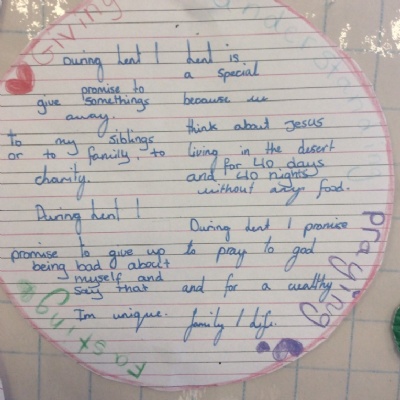 Giving
Understanding
During Lent I
promise to
give somethings
away.
To my siblings
or to family, to
charity.
Lent is
a special
because we
think about Jesus
living in the desert
for 40 days
and 40 nights
without any food.
During Lent I
promise to give up
being bad about
myself and
say that
I'm unique.
During Lent I promise
to pray to god
and for a wealthy
family / life.
praying
Fasting